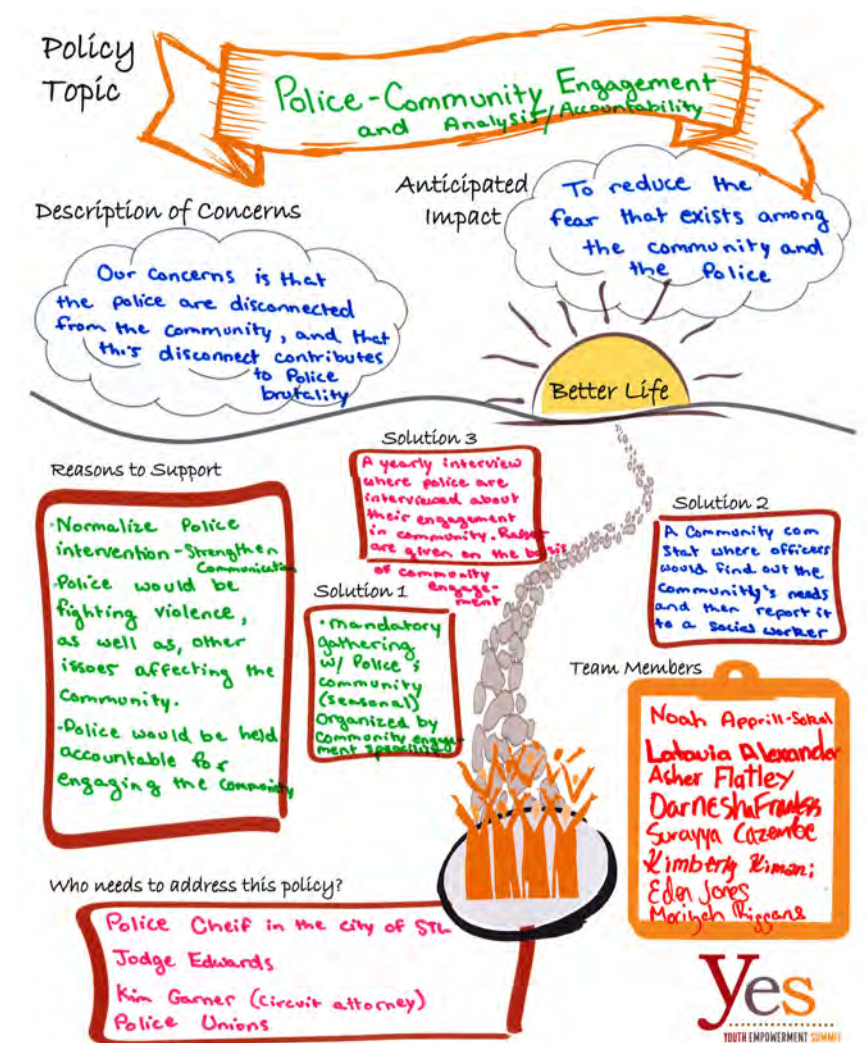 Policy
Topic
Police-Community Engagement
and Analysis/Accountability
Description of Concerns
Our concerns is that
the police are disconnected
from the community, and that
this disconnect contributes
to Police
brutality
Anticipated
Impact
To reduce the
fear that exists among
the community and
the Police
Better Life
Reasons to Support
·Normalize Police
intervention-Strengthen
Communication
·Police would be
fighting violence,
as well as, other
issues affecting the
community.
·Police would be held
accountable for
engaging the community
Solution 3
A yearly interview
where police are
interviewed about
their engagement
in community.
are given on the basis
of community
engage-
ment
Solution 1
·mandatory
gathering
w/ Police &
community
(seasonal)
Organized by
community engage-
ment specialist
Solution 2
A Community com
Stat where officers
would find out the
community's needs
and then report it
to a social worker
Team Members
Noah Apprill-Sokol
Latavia Alexander
Asher Flatley
Darnesha
Surayya Cazembe
Kimberly Kimani
Eden Jones
Riggans
Who needs to address this policy?
Police Cheif in the city of STL
Jodge Edwards
Kim Garner (circuit attorney)
Police Unions
yes
YOUTH EMPOWERMENT SUMMIT